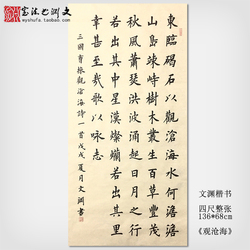 wyshufa.taobao.com
東臨碣石以觀滄海水何澹澹
山島竦峙樹木叢生百草豐茂
秋風蕭瑟洪波涌起日月之行
若出其中星漢燦爛若出其里
幸甚至哉歌以咏志
三國曹操觀滄海詩一首戊戌夏月文淵書
文渊楷书
四尺整张
136*68cm
《观沧海》